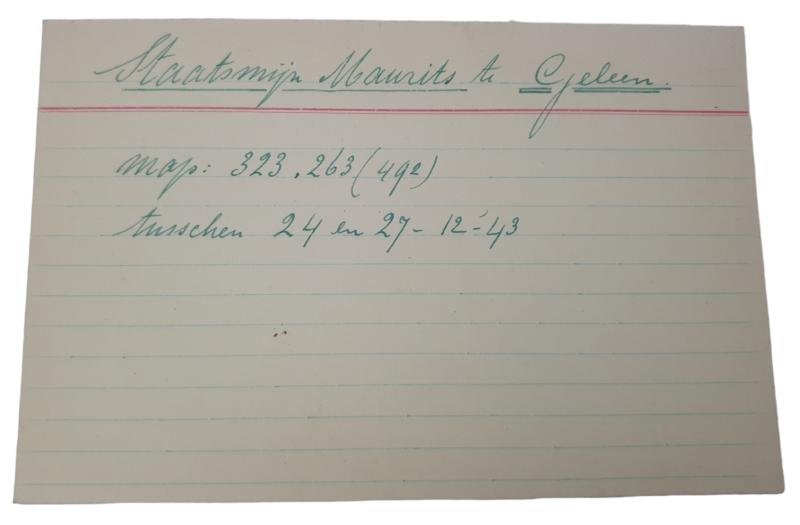 Staatsmijn Maurits te Geleen.
map: 323.263 (492)
tusschen 24 en 27-12-43